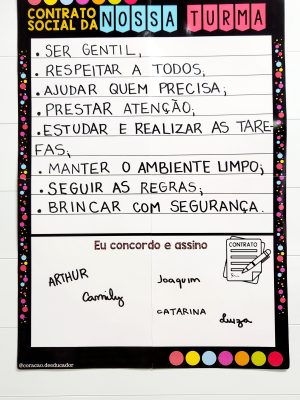 CONTRATO
SOCIAL DA NOSSA TURMA
• SER GENTIL;
• RESPEITAR A TODOS;
• AJUDAR QUEM PRECISA;
• PRESTAR ATENÇÃO;
• ESTUDAR E REALIZAR AS TARE
FAS;
• MANTER O AMBIENTE LIMPO;
• SEGUIR AS REGRAS;
• BRINCAR COM SEGURANÇA.
Eu concordo e assino
CONTRATO
ARTHUR
Joaquim
Camily
CATARINA
Luiza
@coracao.deeducador